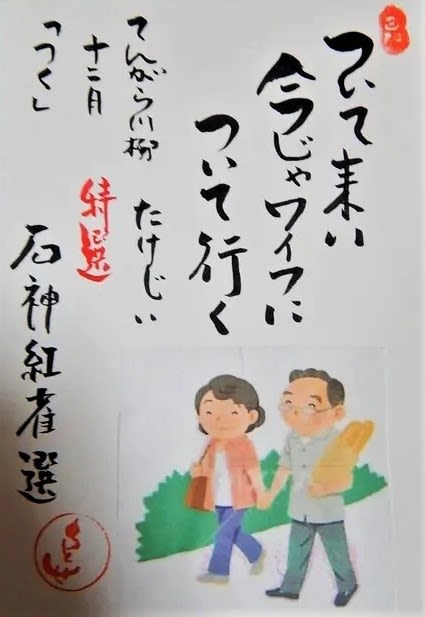 ついて来い
今じゃワイフに
ついて行く
たけじい
てんがらり川柳
十二月
「つく」
特選
石神紅雀選